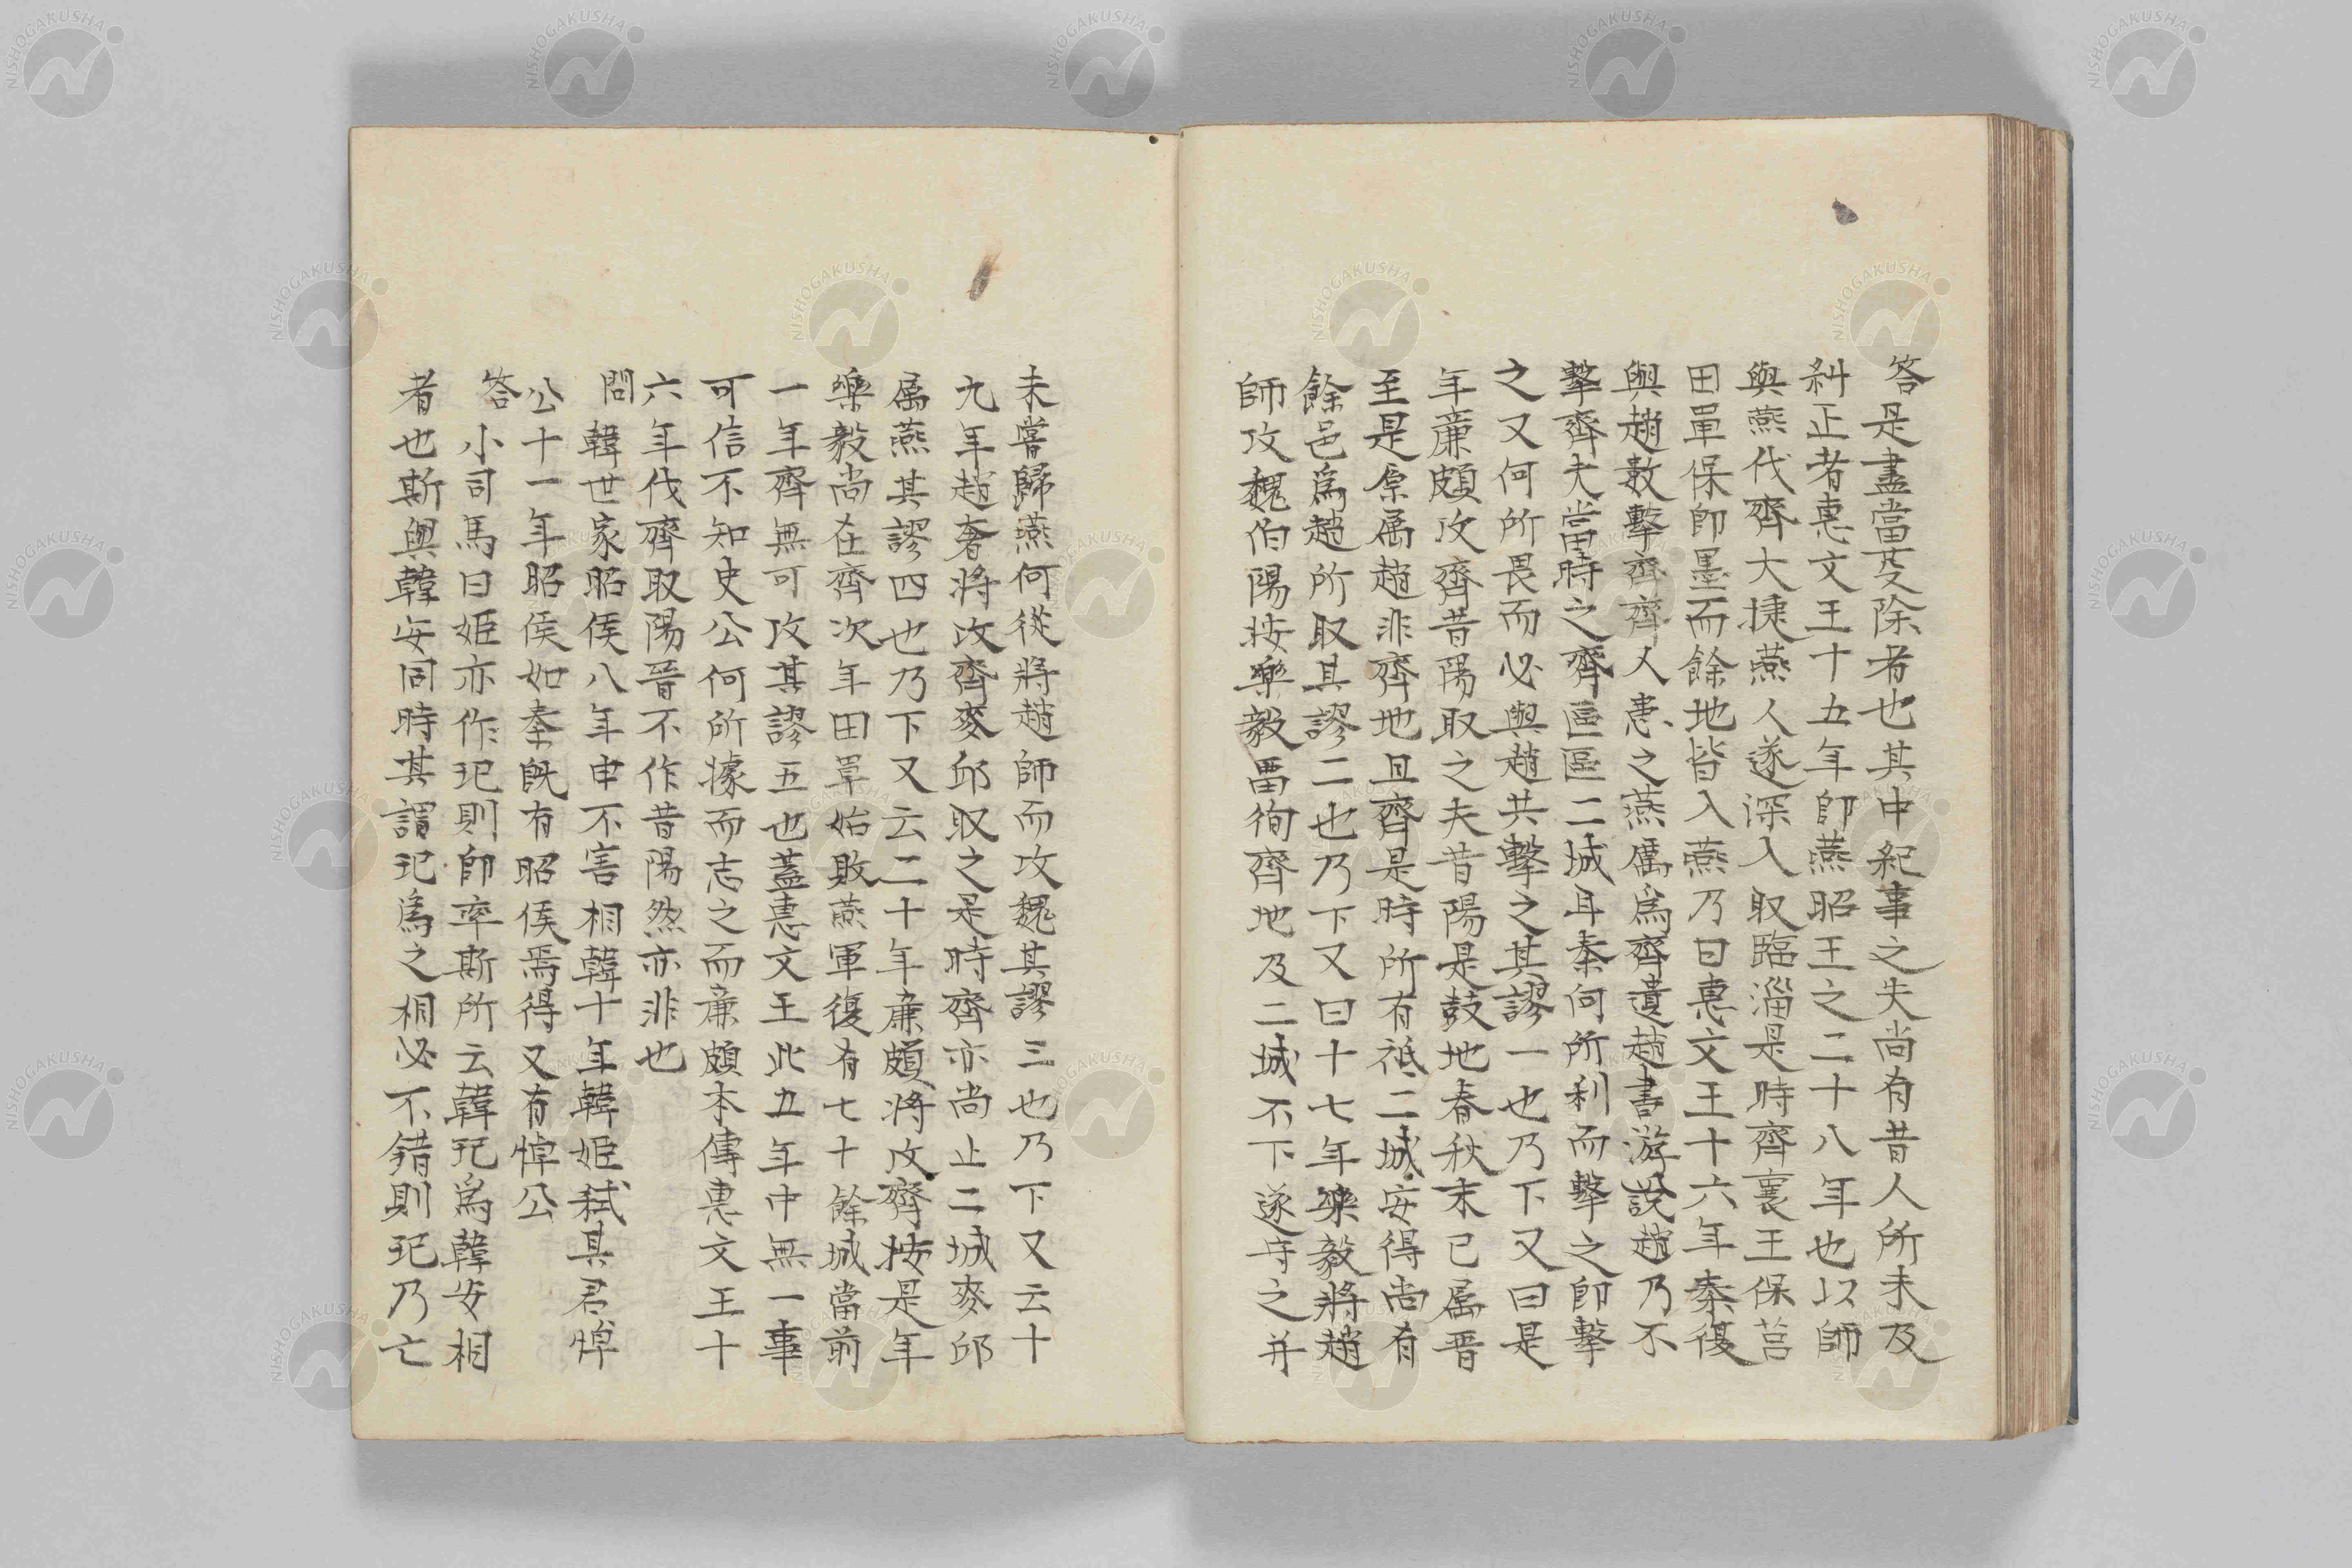 答是盡當芟除者也其中紀事之失尚有昔人所未及
糾正者惠文王十五年卽燕昭王之二十八年也以師
與燕伐齊大捷燕人遂深入取臨淄是時齊襄王保莒
田單保卽墨而餘地皆入燕乃曰惠文王十六年秦復
與趙數擊齊齊人患之燕厲爲齊遺趙書游說趙乃不
擊齊夫當時之齊區區二城耳秦何所利而擊之卽擊
之又何所畏而必與趙共擊之其謬一也乃下又曰是
年廉頗攻齊昔陽取之夫昔陽是鼓地春秋末已屬晉
至是原属趙非齊地且齊是時所有祗二城安得尚有
餘邑爲趙所取其謬二也乃下又曰十七年樂毅將趙
師攻魏伯陽按樂毅畱徇齊地及二城不下遂守之并
未嘗歸燕何從將趙師而攻魏其謬三也乃下又云十
九年趙奢將攻齊麥邱取之是時齊亦尚止二城麥邱
属燕其謬四也乃下又云二十年廉頗將攻齊按是年
樂毅尚在齊次年田單始敗燕軍復有七十餘城當前
一年齊無可攻其謬五也蓋惠文王此五年中無一事
可信不知史公何所據而志之而廉頗本傳惠文王十
六年伐齊取陽晉不作昔陽然亦非也
問韓世家昭侯八年申不害相韓十年韓姬弒其君悼
公十一年昭侯如秦旣有昭侯焉得又有悼公
答小司馬曰姬亦作玘則卽李斯所云韓玘爲韓安相
者也斯與韓安同時其謂玘爲之相必不錯則玘乃亡
NISHOGAKUSHA